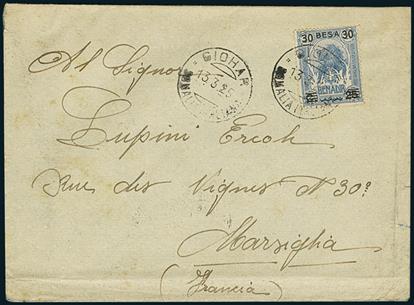 30 BESA 30
BENADIR
GIOHAR
13.3.25
SOMALIA ITALIANA
Al Signor
Lupini Ercole
Rue des Vignes N 30?
Marsiglia
(Francia)